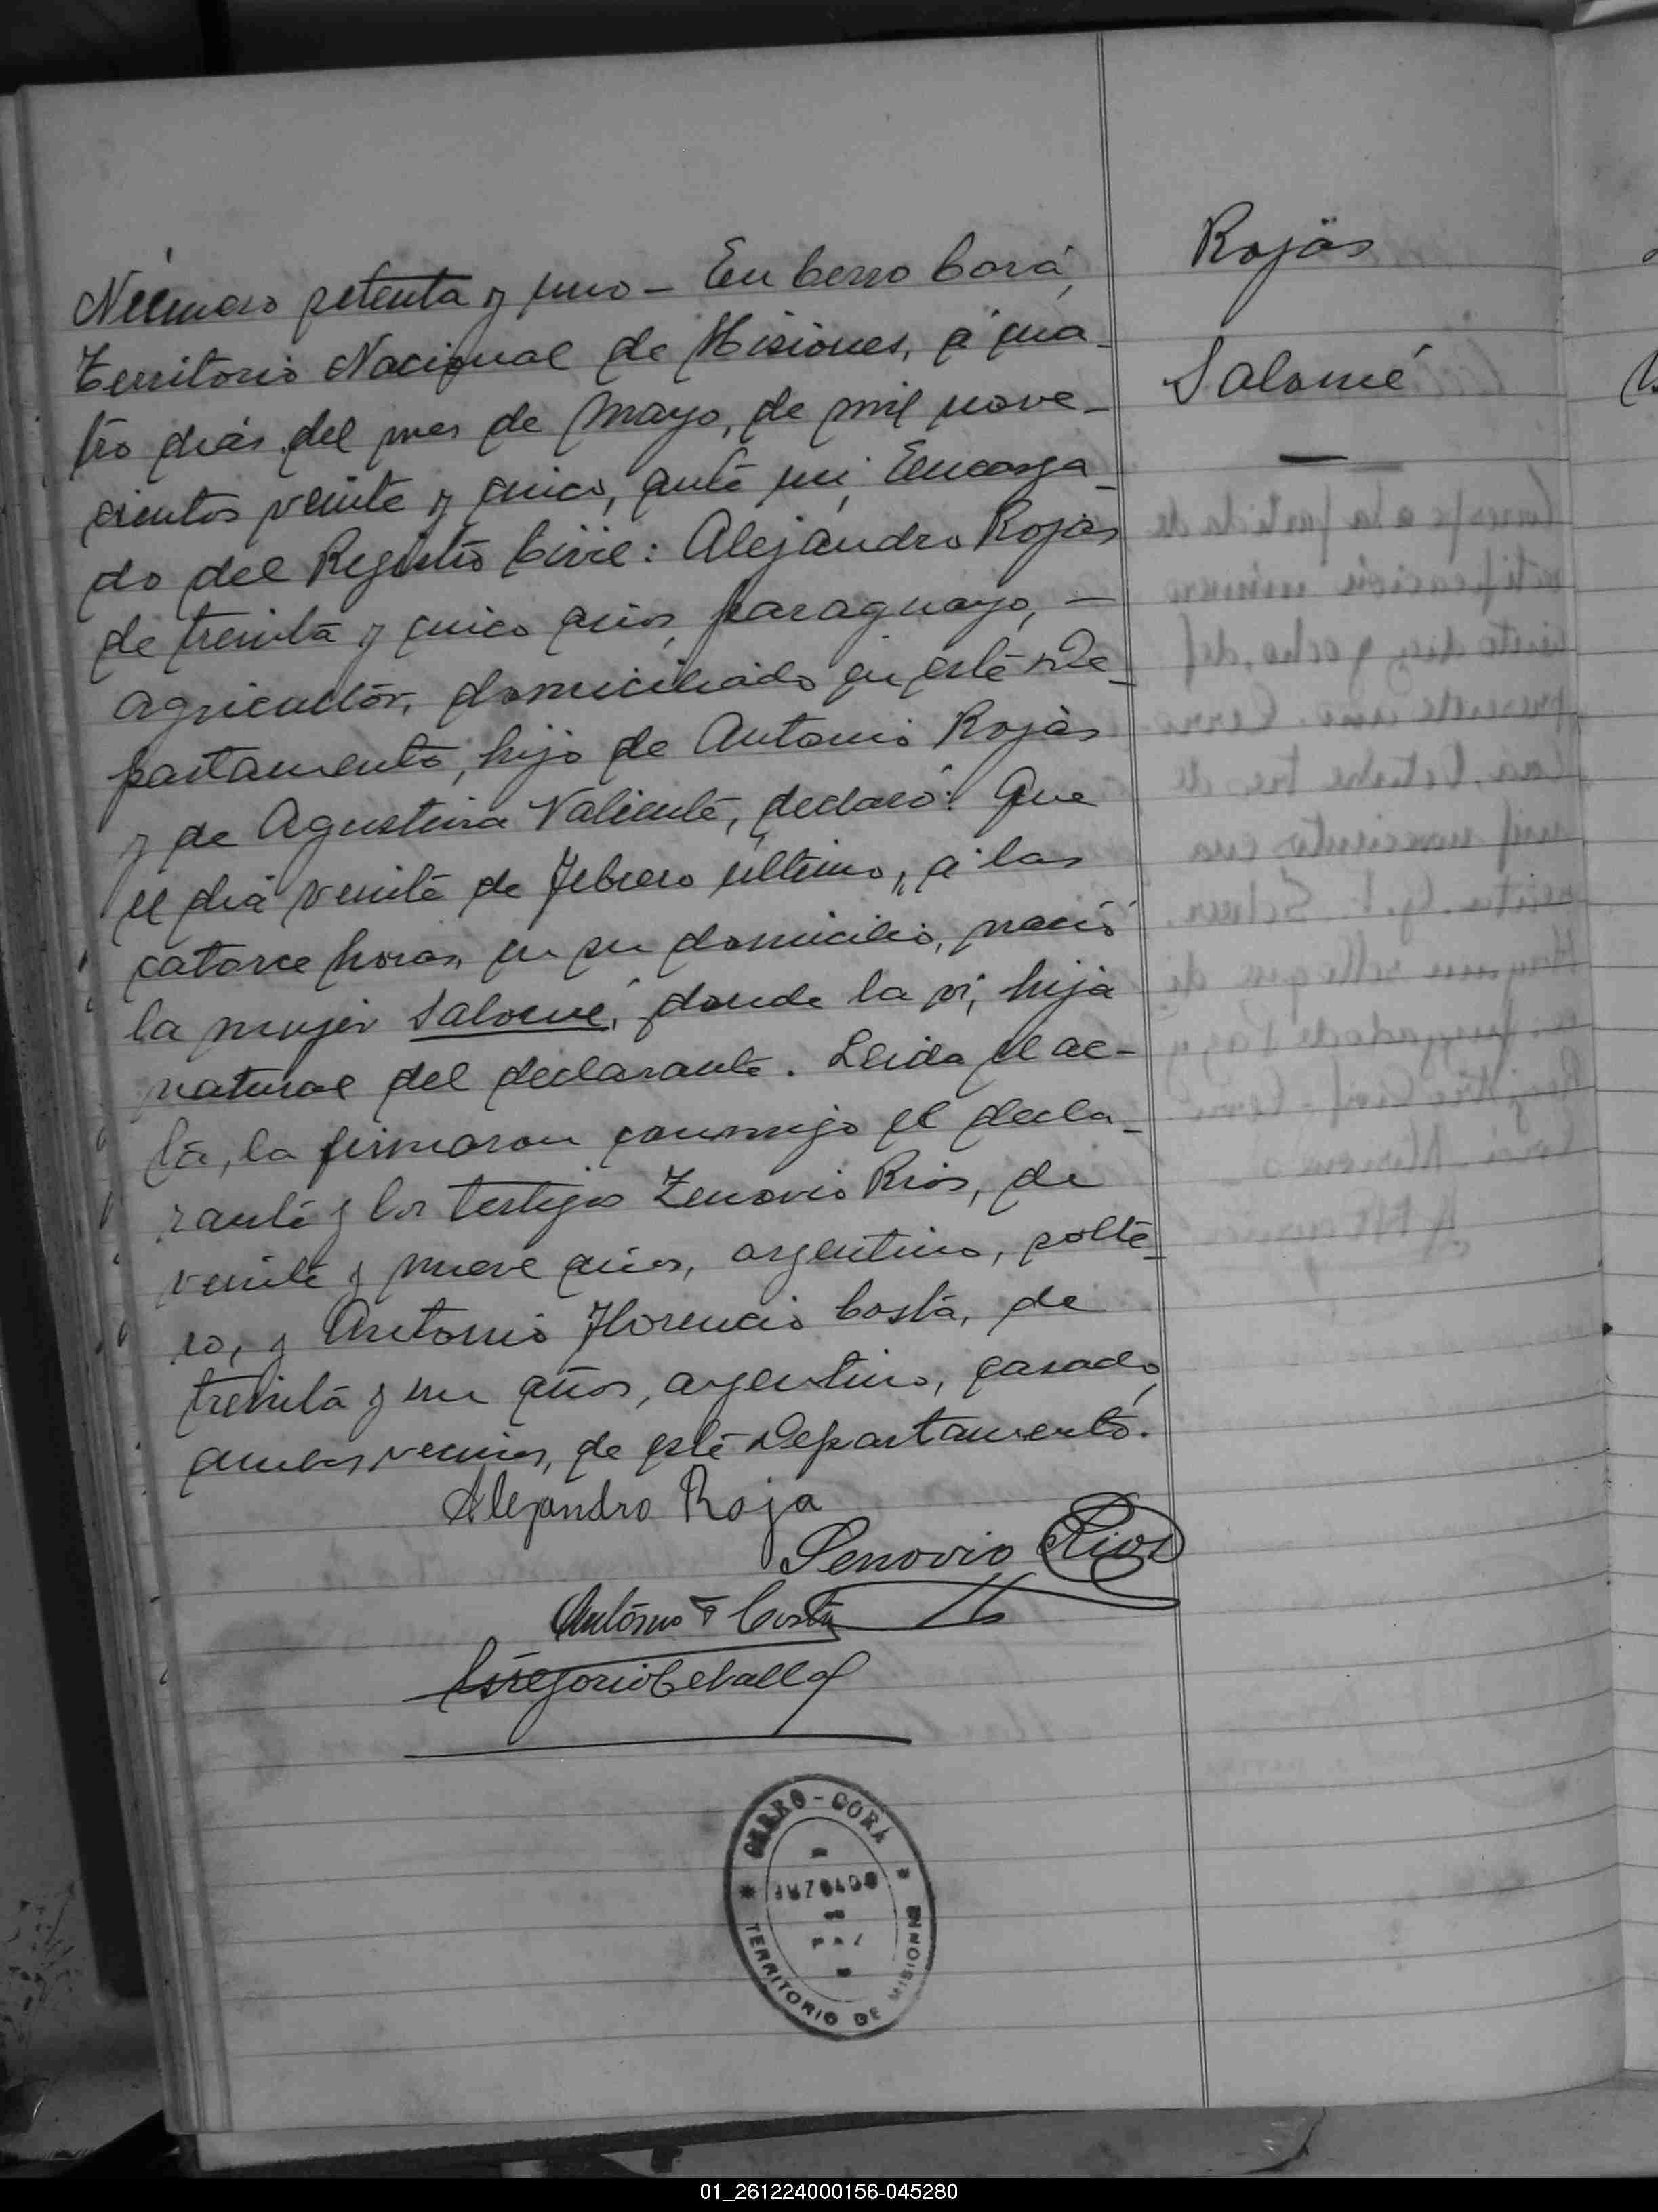 Número setenta y uno - En Cerro Corá,
Territorio Nacional de Misiones, á cua-
tro dias del mes de Mayo, de mil nove-
cientos veinte y cinco, ante mi, Encarga-
do del Registro Civil: Alejandro Rojas
de treinta y cinco años, paraguayo, -
agricultor, domiciliado en este De-
partamento, hijo de Antonio Rojas
y de Agustina Valiente, declaró: Que
el dia veinte de Febrero último, á las
catorce horas, en su domicilio, nació
la mujer Salomé, donde la vi, hija
natural del declarante. Leida el ac-
ta, la firmaron conmigo el decla-
rante y los testigos Zenovio Rios, de
veinte y nueve años, argentino, solte-
ro, y Antonio Florencio Costa, de
treinta y un años, argentino, casado,
ambos vecinos, de este Departamento.
Alejandro Roja
Senovio Rios
Antonio F Costa
Gregorio Ceballo
Rojas
Salomé
CERRO-CORÁ
JUZGADO
PAZ
TERRITORIO DE MISIONES
01_261224000156-045280